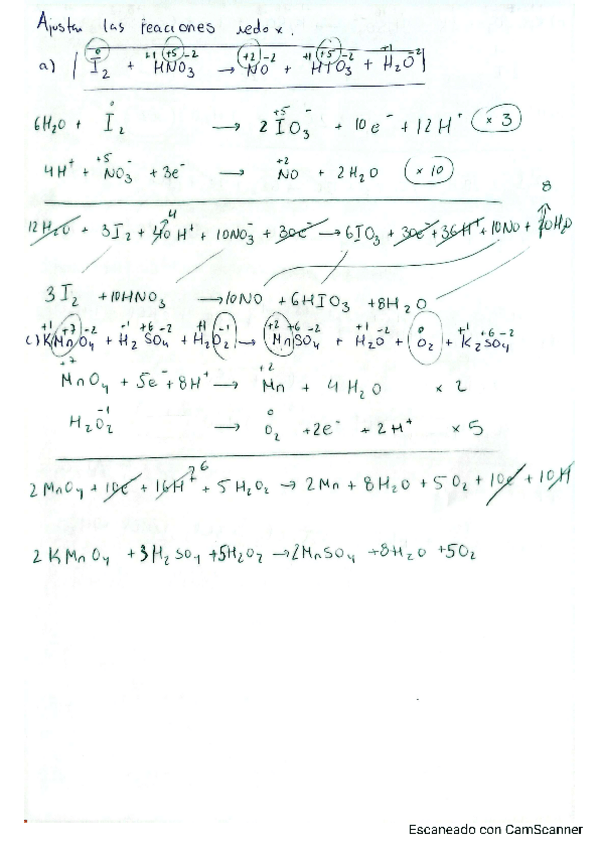 Ajustar las reacciones redox.
a) I₂ + HNO₃ → NO + HIO₃ + H₂O
6H₂O + I₂ → 2 IO₃⁻ + 10e⁻ + 12H⁺ (x 3)
4H⁺ + NO₃⁻ + 3e⁻ → NO + 2H₂O (x 10)
12H₂O + 3I₂ + 40 H⁺ + 10NO₃⁻ + 30e⁻ → 6IO₃ + 30e⁻ + 36H⁺ + 10NO + 20H₂O
3I₂ + 10HNO₃ → 10NO + 6HIO₃ + 8H₂O
c) KMnO₄ + H₂SO₄ + H₂O₂ → MnSO₄ + H₂O + O₂ + K₂SO₄
MnO₄ + 5e⁻ + 8H⁺ → Mn + 4H₂O x 2
H₂O₂ → O₂ + 2e⁻ + 2H⁺ x 5
2MnO₄ + 10e⁻ + 16H⁺ + 5H₂O₂ → 2Mn + 8H₂O + 5O₂ + 10e⁻ + 10H
2KMnO₄ + 3H₂SO₄ + 5H₂O₂ → 2MnSO₄ + 8H₂O + 5O₂
Escaneado con CamScanner